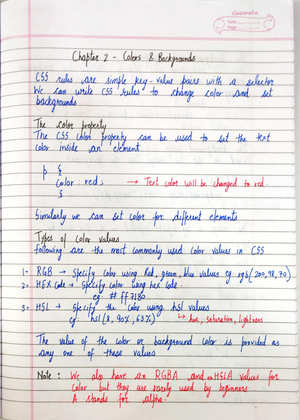 classmate
Date
Page
Chapter 2 - Colors & Backgrounds
CSS rules are simple key-value pairs with a selector
We can write CSS rules to change color and set
backgrounds
The color property
The CSS color property can be used to set the text
color inside an element
p {
color : red; → Text color will be changed to red.
}
Similarly we can set color for different elements
Types of color values
Following are the most commonly used color values in CSS
1- RGB → Specify color using Red, green, blue values eg rgb(200, 98, 70)
2- HEX code → Specify color using hex code
eg #ff7180
3- HSL → Specify the color using hsl values
eg hsl(8, 90%, 63%) ↳ hue, saturation, lightness
The value of the color or background color is provided as
any one of these values
Note : We also have an RGBA and HSLA values for
color but they are rarely used by beginners
A stands for alpha.